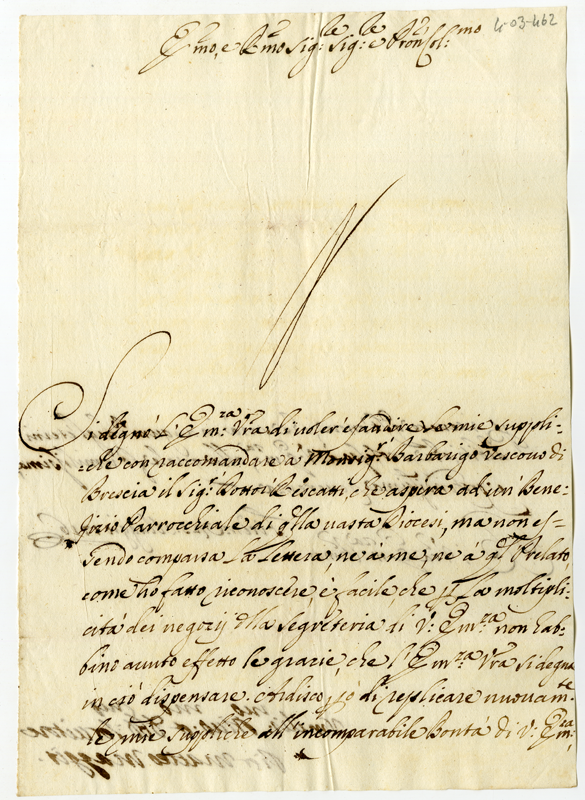 4-03-462
Em̃o, e Rm̃o Sig.re Sig.re e Pron Col.mo
Si degnò l'Em.za V'ra di voler esaudire le mie suppli-
che con raccomandare à Monsig.r Barbarigo Vescovo di
Brescia il Sig.r Dottor Rescatti, che aspira ad un Bene-
fizio Parrocchiale di q'lla vasta Diocesi, ma non es-
sendo comparsa la lettera, nè à me, nè à q'l Prelato,
come hò fatto riconoscere, è facile che p la moltipli-
cità dei negozij d'lla Segreteria di V. Em.za non hab-
bino avuto effetto le grazie, che l'Em.za V'ra si degna
in ciò dispensare. Ardisco p ciò di replicare nuovam.te
le mie suppliche all'incomparabile bontà di V. Em.za,